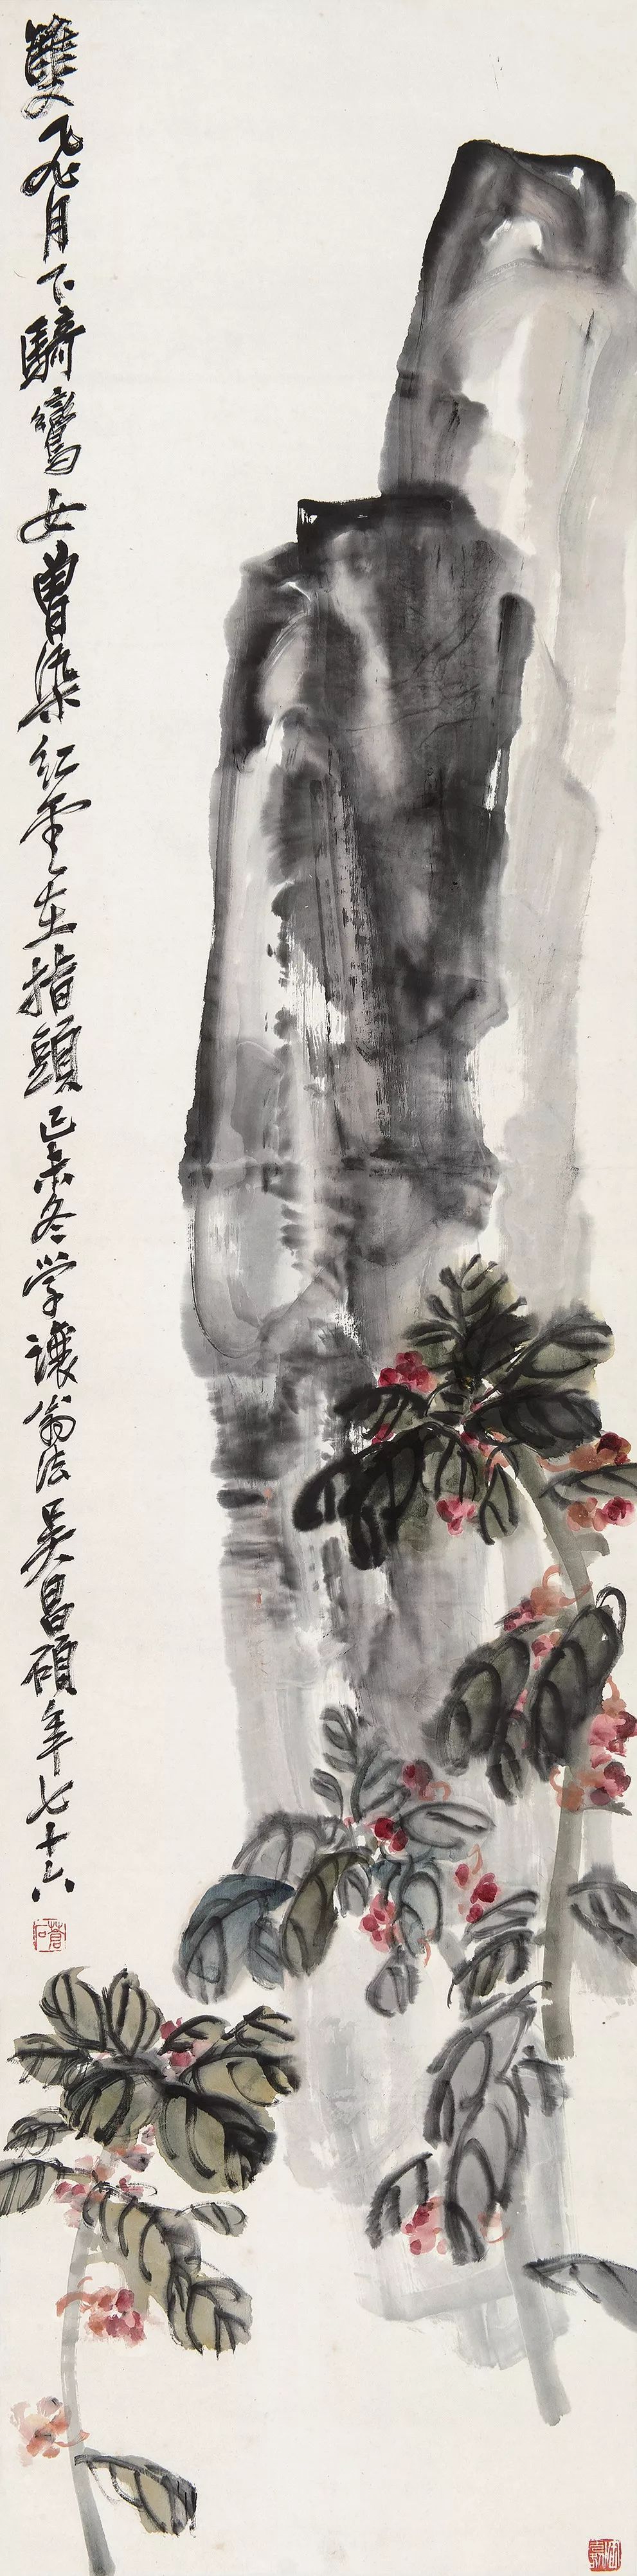 雙飛月下騎鸞女曾染紅雲在指頭己未冬學讓翁法吳昌碩年七十六
蒼石